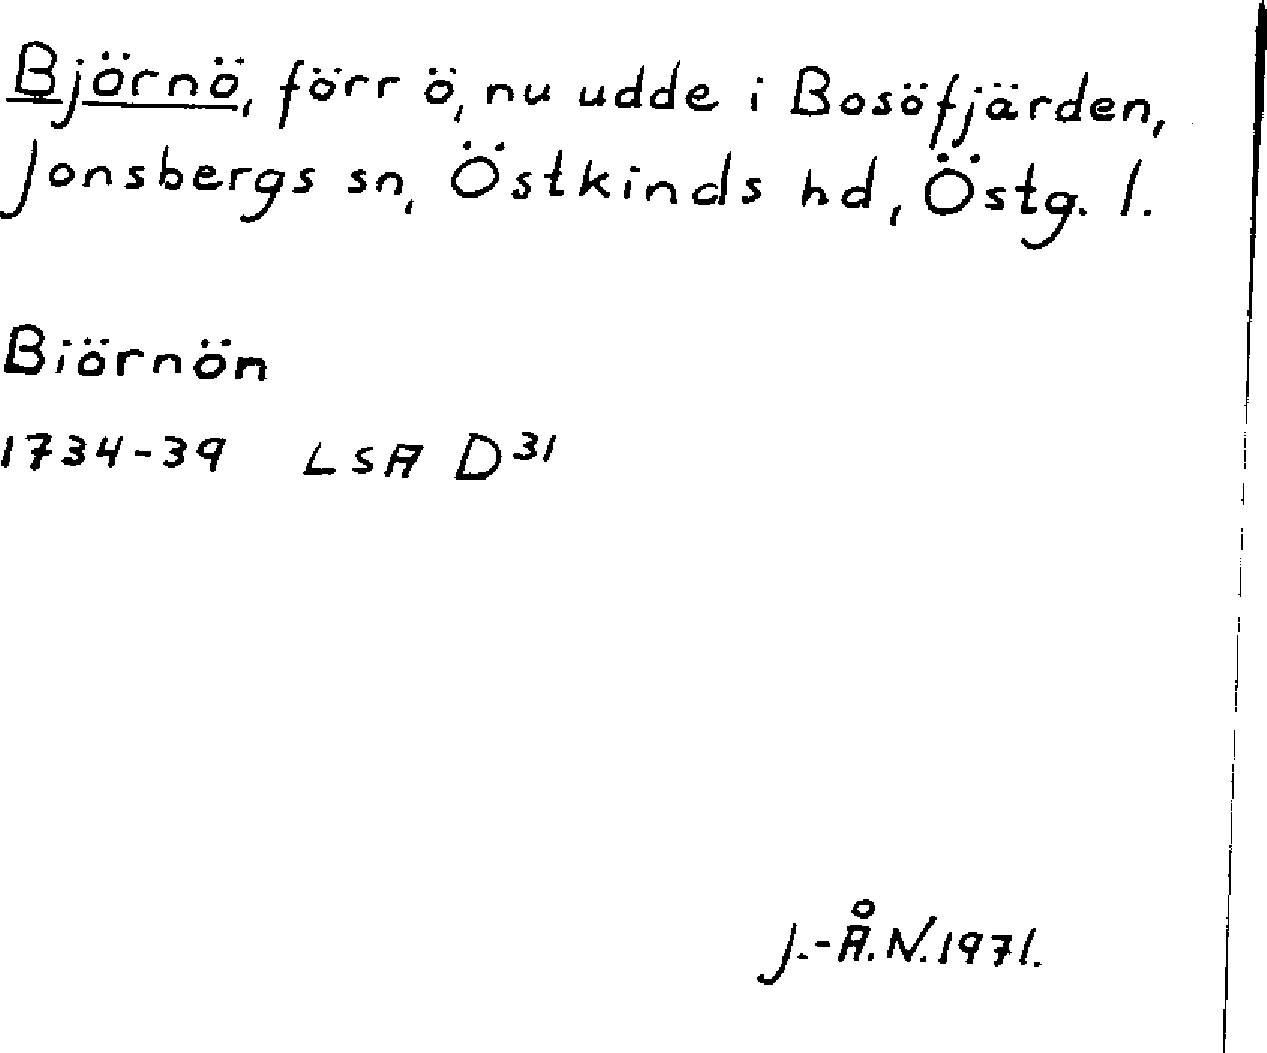 Björnö, förr ö, nu udde i Bosöfjärden,
Jonsbergs sn, Östkinds hd, Östg. l.
Biörnön
1734-39 LSA D31
J.-Å.N. 1971.